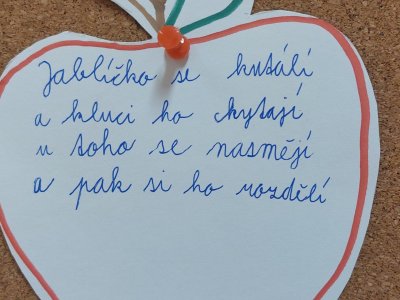 Jablíčko se kutálí
a kluci ho chytají
u toho se nasmějí
a pak si ho rozdělí